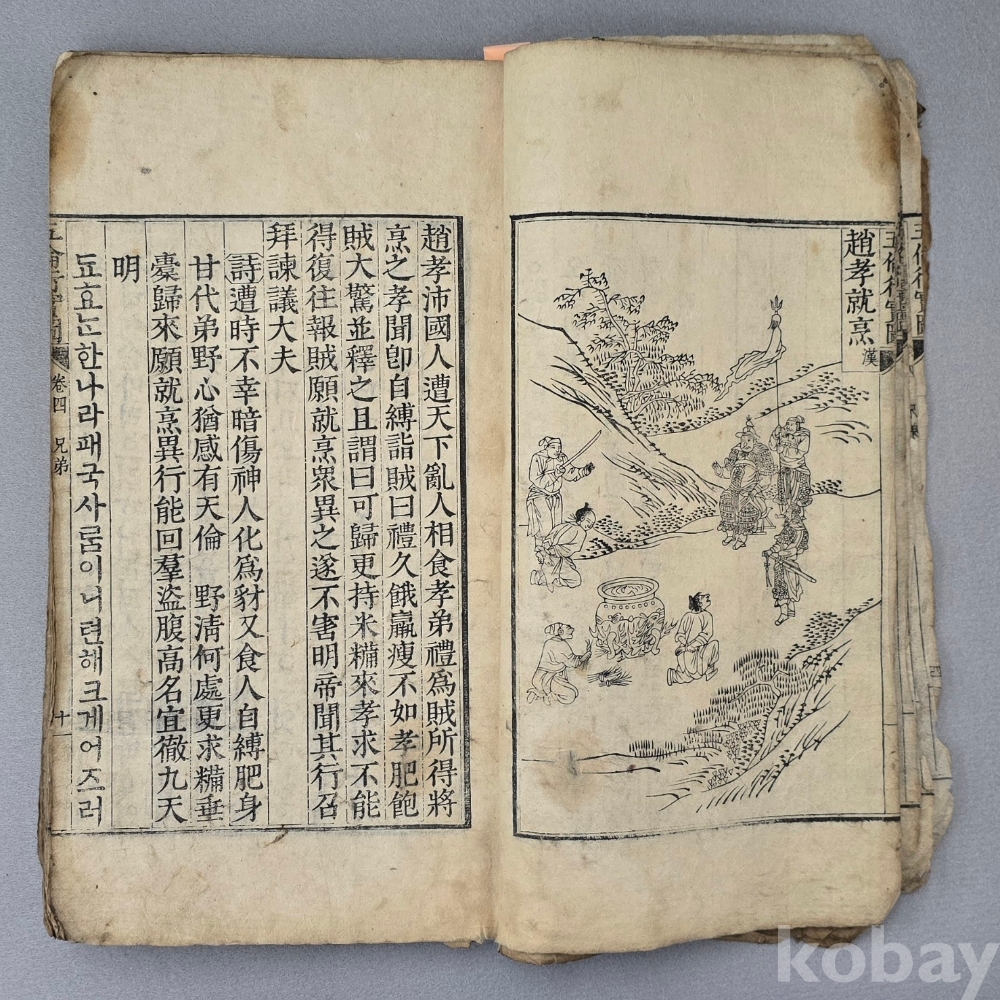 趙孝就烹 漢
趙孝沛國人遭天下亂人相食孝弟禮爲賊所得將
烹之孝聞卽自縛詣賊曰禮久餓羸瘦不如孝肥飽
賊大驚並釋之且謂曰可歸更持米糒來孝求不能
得復往報賊願就烹衆異之遂不害明帝聞其行召
拜諫議大夫
詩遭時不幸暗傷神人化爲豺又食人自縛肥身
甘代弟野心猶感有天倫 野清何處更求糒垂
橐歸來願就烹異行能回羣盜腹高名宜徹九天
明
됴효ᄂᆞᆫ한나라패국사ᄅᆞᆷ이니텬해크게어즈러
卷四 兄弟 十一
kobay